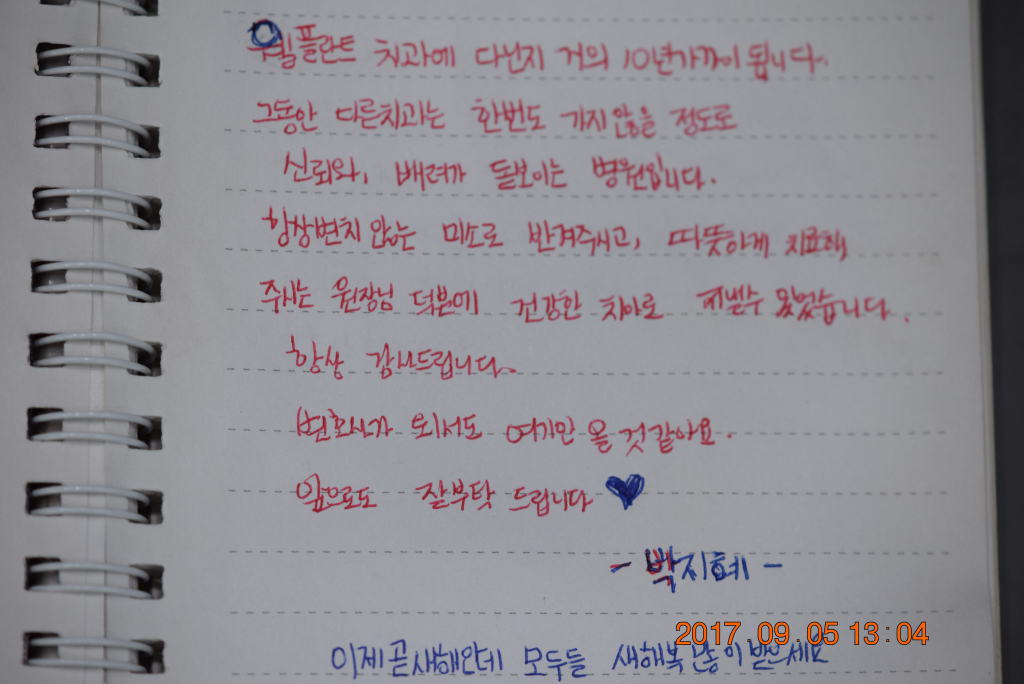 윌플란트 치과에 다닌지 거의 10년가까이 됩니다.
그동안 다른치과는 한번도 가지않을 정도로
신뢰와, 배려가 돋보이는 병원입니다.
항상변치않는 미소로 반겨주시고, 따뜻하게 치료해
주시는 원장님 덕분에 건강한 치아로 지낼수 있었습니다.
항상 감사드립니다.
변호사가 되서도 여기만 올 것 같아요.
앞으로도 잘부탁 드립니다
- 박지혜 -
2017.09.05 13:04
이제곧새해인데 모두들 새해복 많이받으세요